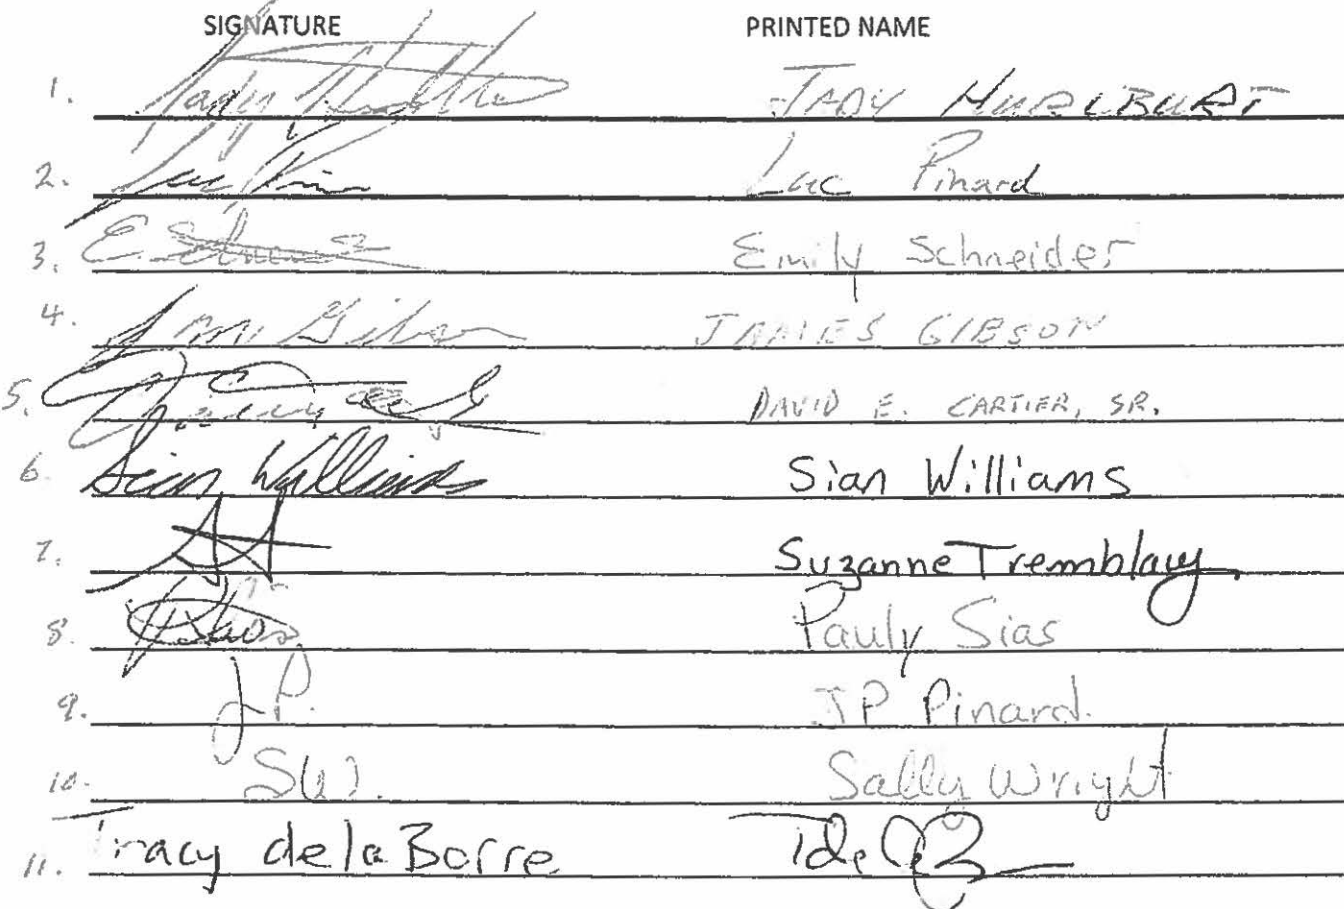 SIGNATURE PRINTED NAME
1. JADY HURLBURT
2. Luc Pinard
3. E. Emily Schneider
4. J M Gibson JAMES GIBSON
5. DAVID E. CARTIER, SR.
6. Sian Williams Sian Williams
7. Suzanne Tremblay
8. Pauly Sias
9. JP. JP Pinard.
10. SW. Sally Wright
11. Tracy de la Borre